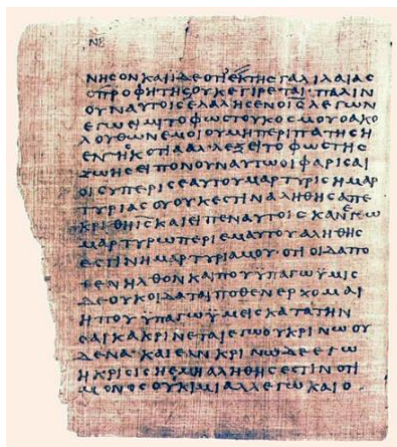 ΝΒ
ΝΗϹΟΝΚΑΙΪΔΕΟΤΙΕΚΤΗϹΓΑΛΙΛΑΙΑϹ
ΟΠΡΟΦΗΤΗϹΟΥΚΕΓΙΡΕΤΑΙ·ΠΑΛΙΝ
ΟΥΝΑΥΤΟΙϹΕΛΑΛΗϹΕΝΟΙ̅Ϲ̅ΛΕΓΩΝ
ΕΓΩΕΙΜΙΤΟΦΩϹΤΟΥΚΟϹΜΟΥΟΑΚΟ
ΛΟΥΘΩΝΕΜΟΙΟΥΜΗΠΕΡΙΠΑΤΗϹΗ
ΕΝΤΗϹΚΟΤΙΑΑΛΛΕΞΕΙΤΟΦΩϹΤΗϹ
ΖΩΗϹΕΙΠΟΝΟΥΝΑΥΤΩΟΙΦΑΡΙϹΑΙ
ΟΙϹΥΠΕΡΙϹΕΑΥΤΟΥΜΑΡΤΥΡΙϹΗΜΑΡ
ΤΥΡΙΑϹΟΥΟΥΚΕϹΤΙΝΑΛΗΘΗϹΑΠΕ
ΚΡΙΘΗΙ̅Ϲ̅ΚΑΙΕΙΠΕΝΑΥΤΟΙϹΚΑΝΕΓΩ
ΜΑΡΤΥΡΩΠΕΡΙΕΜΑΥΤΟΥΑΛΗΘΗϹ
ΕϹΤΙΝΗΜΑΡΤΥΡΙΑΜΟΥΟΤΙΟΙΔΑΠΟ
ΘΕΝΗΛΘΟΝΚΑΙΠΟΥΫΠΑΓΩΫΜΙϹ
ΔΕΟΥΚΟΙΔΑΤΑΙΠΟΘΕΝΕΡΧΟΜΑΙ
ΗΠΟΥΫΠΑΓΩΫΜΕΙϹΚΑΤΑΤΗΝ
ϹΑΡΚΑΚΡΙΝΕΤΑΙΕΓΩΟΥΚΡΙΝΩΟΥ
ΔΕΝΑΚΑΙΕΑΝΚΡΙΝΩΔΕΕΓΩ
ΗΚΡΙϹΙϹΗΕΜΗΑΛΗΘΗϹΕϹΤΙΝΟΤΙ
ΜΟΝΟϹΟΥΚΙΜΙΑΛΛΕΓΩΚΑΙΟ